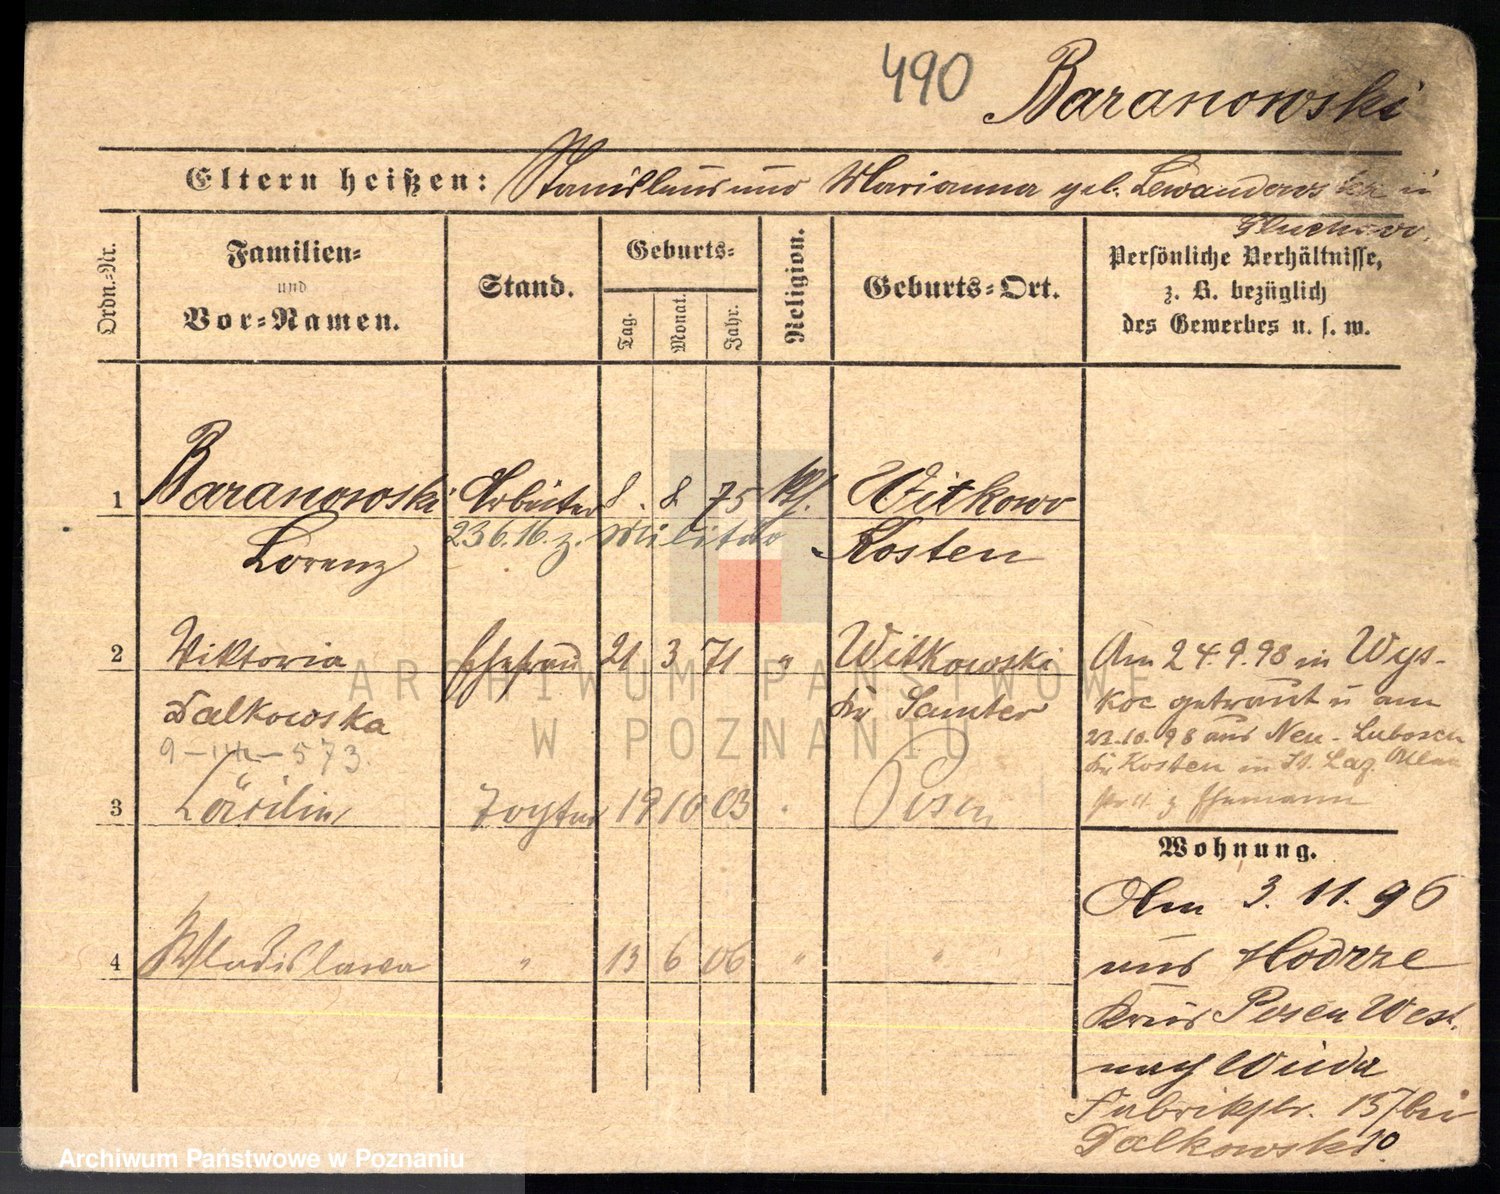 490 Baranowski
Eltern heißen: Stanislaus und Marianna geb. Lewandowski in
Gluchowo.
Ordn.-Nr.
Familien- und Vor-Namen.
Stand.
Geburts-
Tag. Monat. Jahr.
Religion.
Geburts-Ort.
Persönliche Verhältnisse,
z. B. bezüglich
des Gewerbes u. s. w.
1 Baranowski Arbeiter 8. 8. 75 kth. Witkowo
Lorenz 23.6.16. z. Militär Kosten
2 Wiktoria Ehefrau 21 3 71 " Witkowski
Dalkowska Kr Samter
9 573.
3 Cäcilia Tochter 19 10 03 " Posen
4 Wladislawa " 13 6 06 " "
Am 24.9.98 in Wys-
koc getraut u am
23.10.98 aus Neu-Lubosch
Kr Kosten in St. Laz.
z Ehemann
Wohnung.
Am 3.11.96
aus Modrze
Kreis Posen West.
nach Wilda
Fabrikstr. 15 bei
Dalkowski.
ARCHIWUM PAŃSTWOWE
W POZNANIU
Archiwum Państwowe w Poznaniu